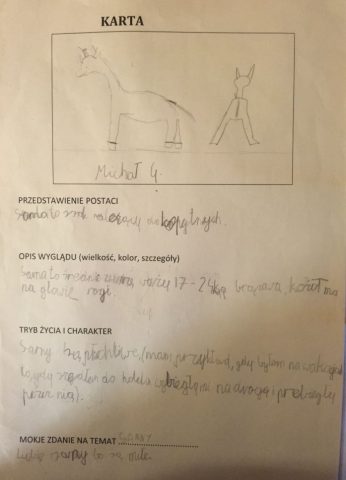 KARTA
Michał G.
PRZEDSTAWIENIE POSTACI
Sarna to ssak należący do kopytnych.
OPIS WYGLĄDU (wielkość, kolor, szczegóły)
Sarna to średnie waży 17-24 kg brązowa, kozioł ma
na głowie rogi.
TRYB ŻYCIA I CHARAKTER
Sarny są płochliwe, (mam przykład, gdy byłem na wakacjach
to, gdy do hotelu wybiegły mi na drogę i przebiegły
przez nią).
MOKJE ZDANIE NA TEMAT SARNY
Lubię sarny bo są miłe.